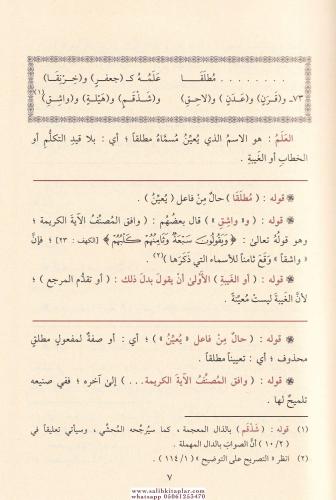 . . . . . . . . مُطلَقَا عَلَمُهُ كـ (جعفرٍ) و(خِرْنِقَا)
٧٣ـ و(قَرَنٍ) و(عَدَنٍ) و(لاحِقِ) و(شَذْقَمٍ) و(هَيْلَةٍ) و(واشِقِ)(١)
العَلَمُ : هو الاسمُ الذي يُعيِّنُ مُسمَّاهُ مطلقاً ؛ أي : بلا قيدِ التكلُّمِ أو
الخطابِ أو الغَيبةِ .
❋ قوله : ( مُطلَقَا ) حالٌ مِنْ فاعل ( يُعيِّنُ ) .
❋ قوله : ( و« واشِقٍ » ) قال بعضُهم : ( وافق المصنِّفُ الآيةَ الكريمة ؛
وهو قولُهُ تعالىٰ : ﴿ وَيَقُولُونَ سَبْعَةٌ وَثَامِنُهُمْ كَلْبُهُمْ ﴾ [الكهف : ٢٣] ؛ فإنَّ
« واشقاً » وَقَعَ ثامناً للأسماء التي ذَكَرَها )(٢) .
❋ قوله : ( أو الغَيبةِ ) الأَوْلىٰ أنْ يقولَ بدلَ ذلك : ( أو تقدُّمِ المرجعِ ) ؛
لأنَّ الغَيبةَ ليستْ مُعيِّنةً .
❋ قوله : ( حالٌ مِنْ فاعلِ « يُعيِّنُ » ) ؛ أي : أو صفةٌ لمفعولٍ مطلقٍ
محذوفٍ ؛ أي : تعييناً مطلقاً .
❋ قوله : ( وافق المصنِّفُ الآيةَ الكريمة... ) إلىٰ آخره ؛ ففي صنيعه
تلميحٌ لها .
(١) قوله : ( شَذْقَمٍ ) بالذال المعجمة ، كما سيُرجِّحه المُحشِّي ، وسيأتي تعليقاً في
( ١٠/٢ ) أنَّ الصوابَ بالدال المهملة .
(٢) انظر « التصريح على التوضيح » ( ١١٤/١ ) .
٧
www.salihkitaplar.com
whatsapp 05061253470